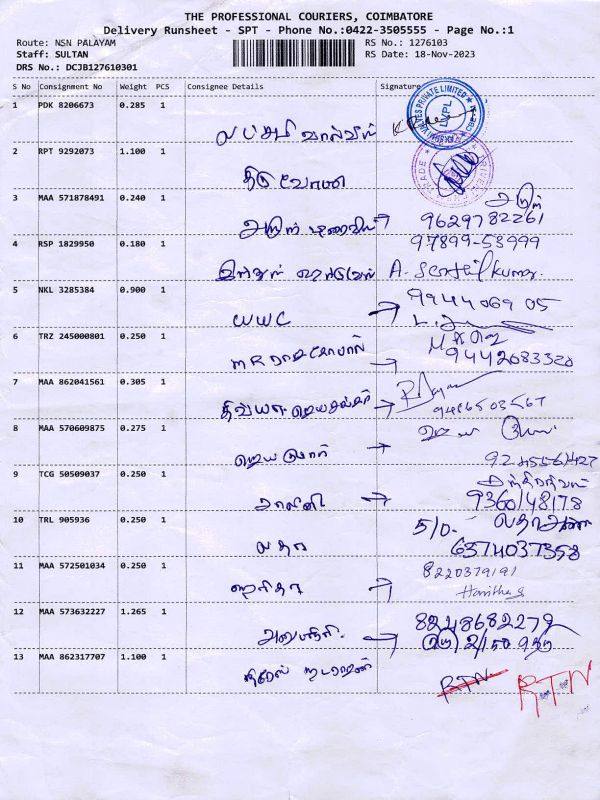 THE PROFESSIONAL COURIERS, COIMBATORE
Delivery Runsheet - SPT - Phone No.:0422-3505555 - Page No.:1
Route: NSN PALAYAM
RS No.: 1276103
Staff: SULTAN
RS Date: 18-Nov-2023
DRS No.: DCJB127610301
S No Consignment No Weight PCS Consignee Details Signature
1 PDK 8206673 0.285 1
லட்சுமி வால்வ்ஸ்
2 RPT 9292073 1.100 1
3 MAA 571878491 0.240 1
அருள்
9629782261
4 RSP 1829950 0.180 1
97899-53999
A. Senthilkumar.
5 NKL 3285384 0.900 1
WWC → 99440 069 05
6 TRZ 245000801 0.250 1
MR ராஜகோபால் → 9442683320
7 MAA 862041561 0.305 1
→ 9486503567
8 MAA 570609875 0.275 1
ஜெயகுமார் →
9245561427
9 TCG 50509037 0.250 1
ஷாலினி → 9360148178
10 TRL 905936 0.250 1
5/0-
லதா 6374037358
11 MAA 572501034 0.250 1
8220379191
ஹரிதா → Haritha S
12 MAA 573632227 1.265 1
8248682279
→ 2/50
13 MAA 862317707 1.100 1
நடராஜன்
RTN RTN